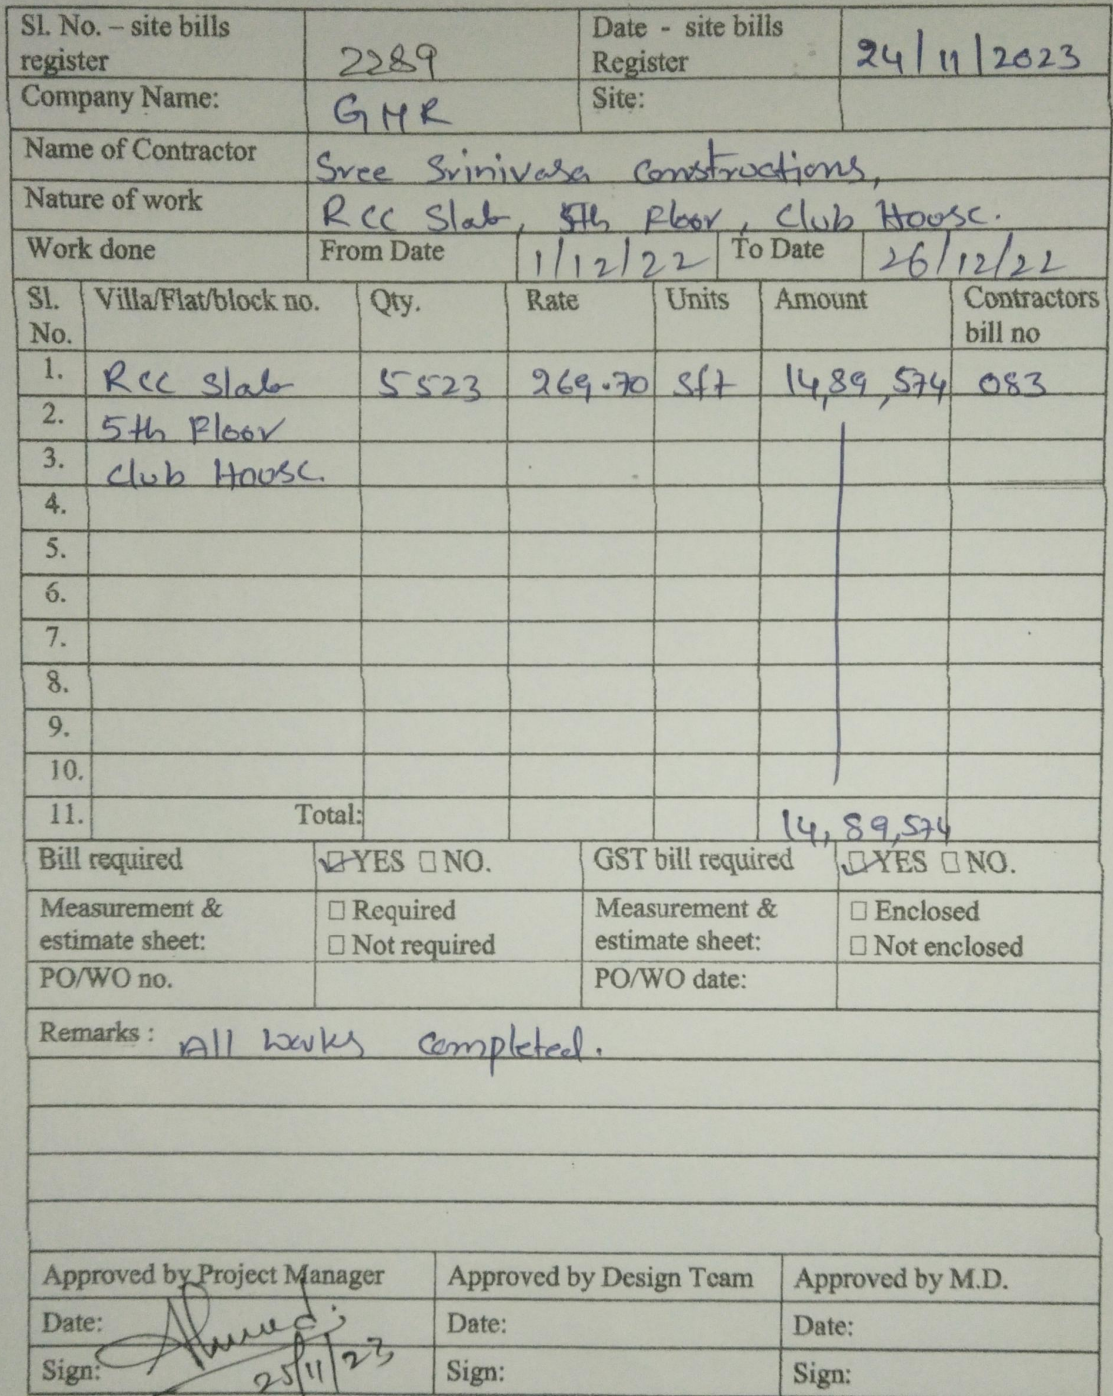 Sl. No. – site bills register 2289 Date - site bills Register 24/11/2023
Company Name: GMR Site:
Name of Contractor Sree Srinivasa Constructions,
Nature of work RCC Slab, 5th Floor, Club House.
Work done From Date 1/12/22 To Date 26/12/22
Sl. No. Villa/Flat/block no. Qty. Rate Units Amount Contractors bill no
1. RCC Slab 5523 269.70 Sft 14,89,574 083
2. 5th Floor
3. Club House.
4.
5.
6.
7.
8.
9.
10.
11. Total: 14,89,574
Bill required ☑YES ☐NO. GST bill required ☑YES ☐NO.
Measurement & estimate sheet: ☐ Required ☐ Not required Measurement & estimate sheet: ☐ Enclosed ☐ Not enclosed
PO/WO no. PO/WO date:
Remarks : All works completed.
Approved by Project Manager Approved by Design Team Approved by M.D.
Date: Date: Date:
Sign: 25/11/23 Sign: Sign: